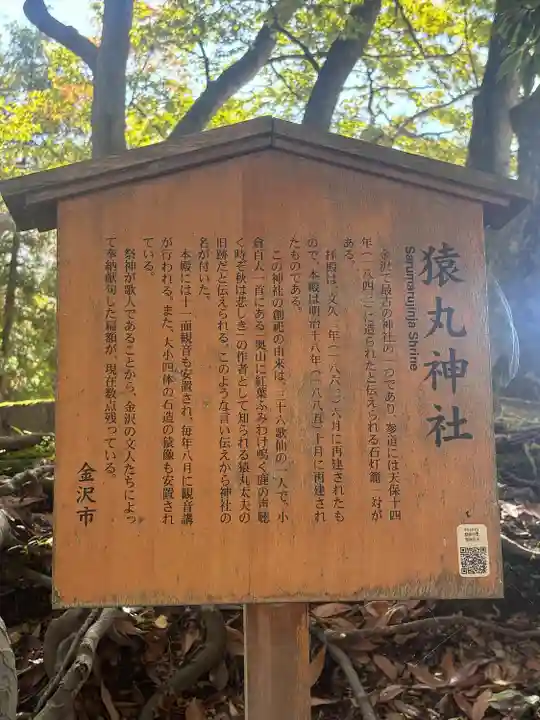 猿丸神社
Sarumarujinja Shrine
金沢で最古の神社の一つであり、参道には天保十四
年(一八四三)に造られたと伝えられる石灯籠一対が
ある。
拝殿は、文久二年(一八六二)六月に再建されたも
ので、本殿は明治十八年(一八八五)十月に再建され
たものである。
この神社の創祀の由来は、三十六歌仙の一人で、小
倉百人一首にある「奥山に紅葉ふみわけ鳴く鹿の声聴
く時ぞ秋は悲しき」の作者として知られる猿丸太夫の
旧跡だと伝えられる。このような言い伝えから神社の
名が付いた。
本殿には十一面観音も安置され、毎年八月に観音講
が行われる。また、大小四体の石造の猿像も安置され
ている。
祭神が歌人であることから、金沢の文人たちによっ
て奉納献句した扁額が、現在数点残っている。
金沢市